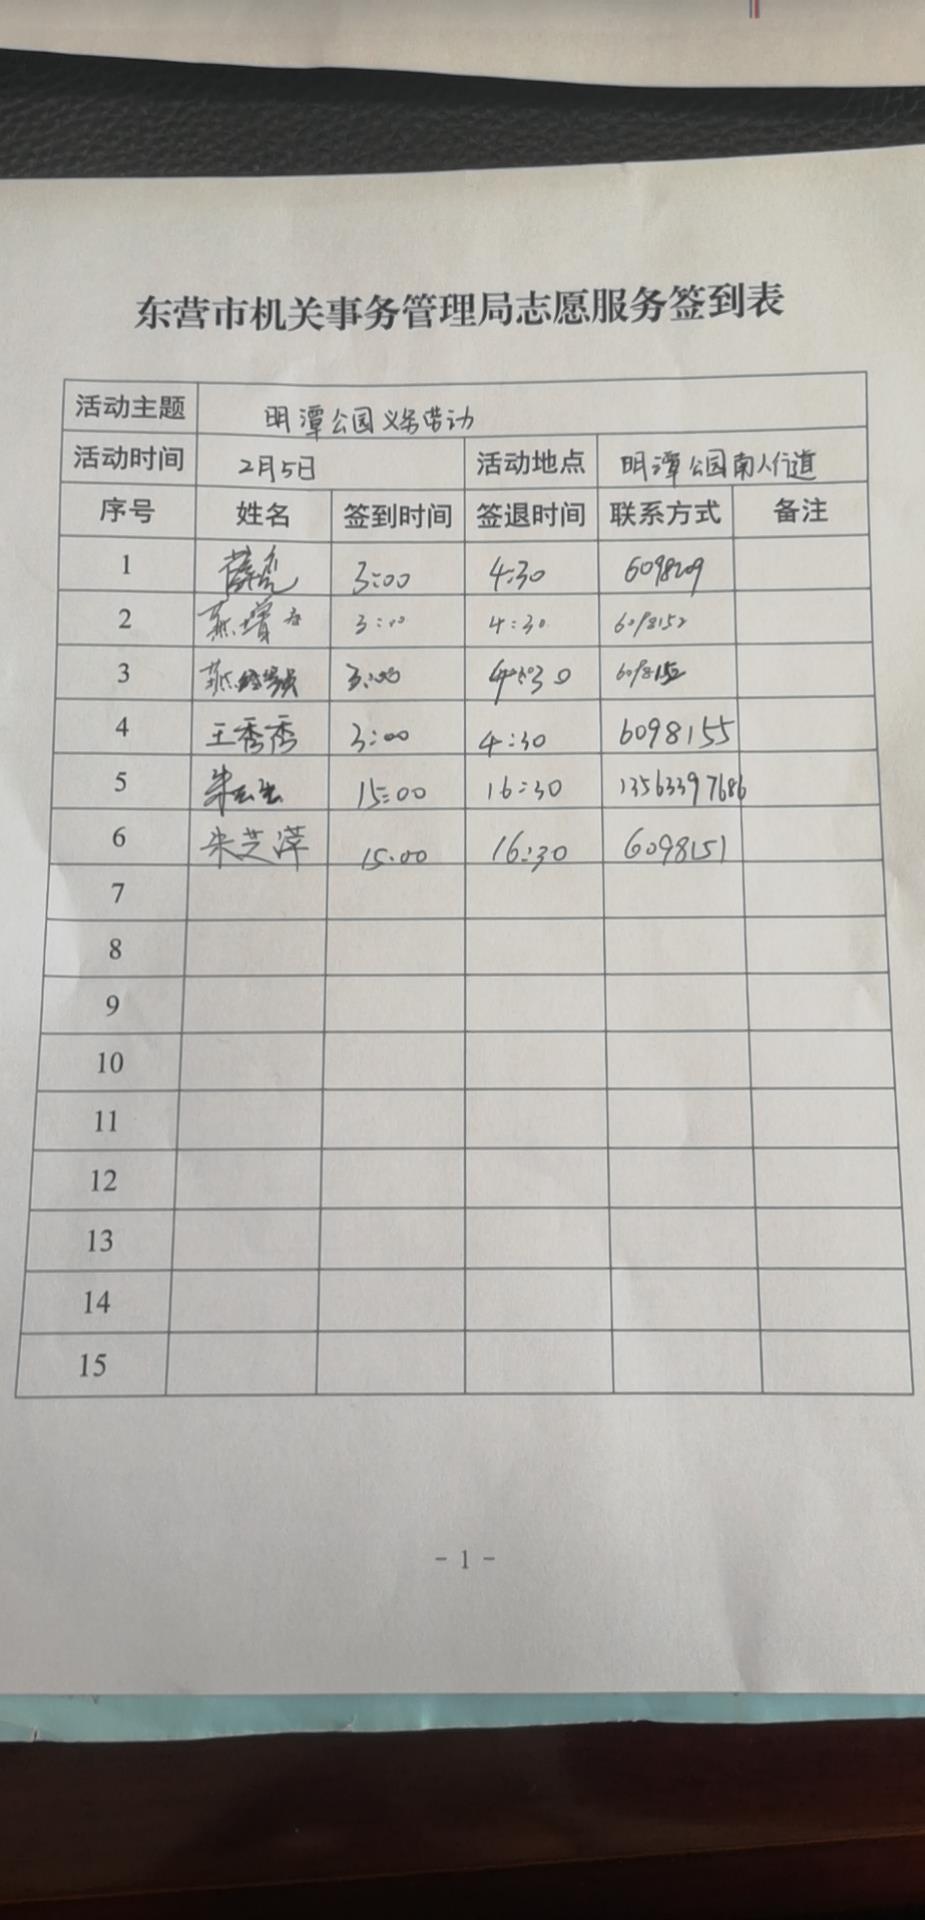 东营市机关事务管理局志愿服务签到表
活动主题 明潭公园义务劳动
活动时间 2月5日 活动地点 明潭公园南人行道
序号 姓名 签到时间 签退时间 联系方式 备注
1 3:00 4:30 6098209
2 3:00 4:30 6098152
3 3:00 4:30 6098152
4 王秀秀 3:00 4:30 6098155
5 15:00 16:30 13563397686
6 朱芝萍 15:00 16:30 6098151
7
8
9
10
11
12
13
14
15
- 1 -